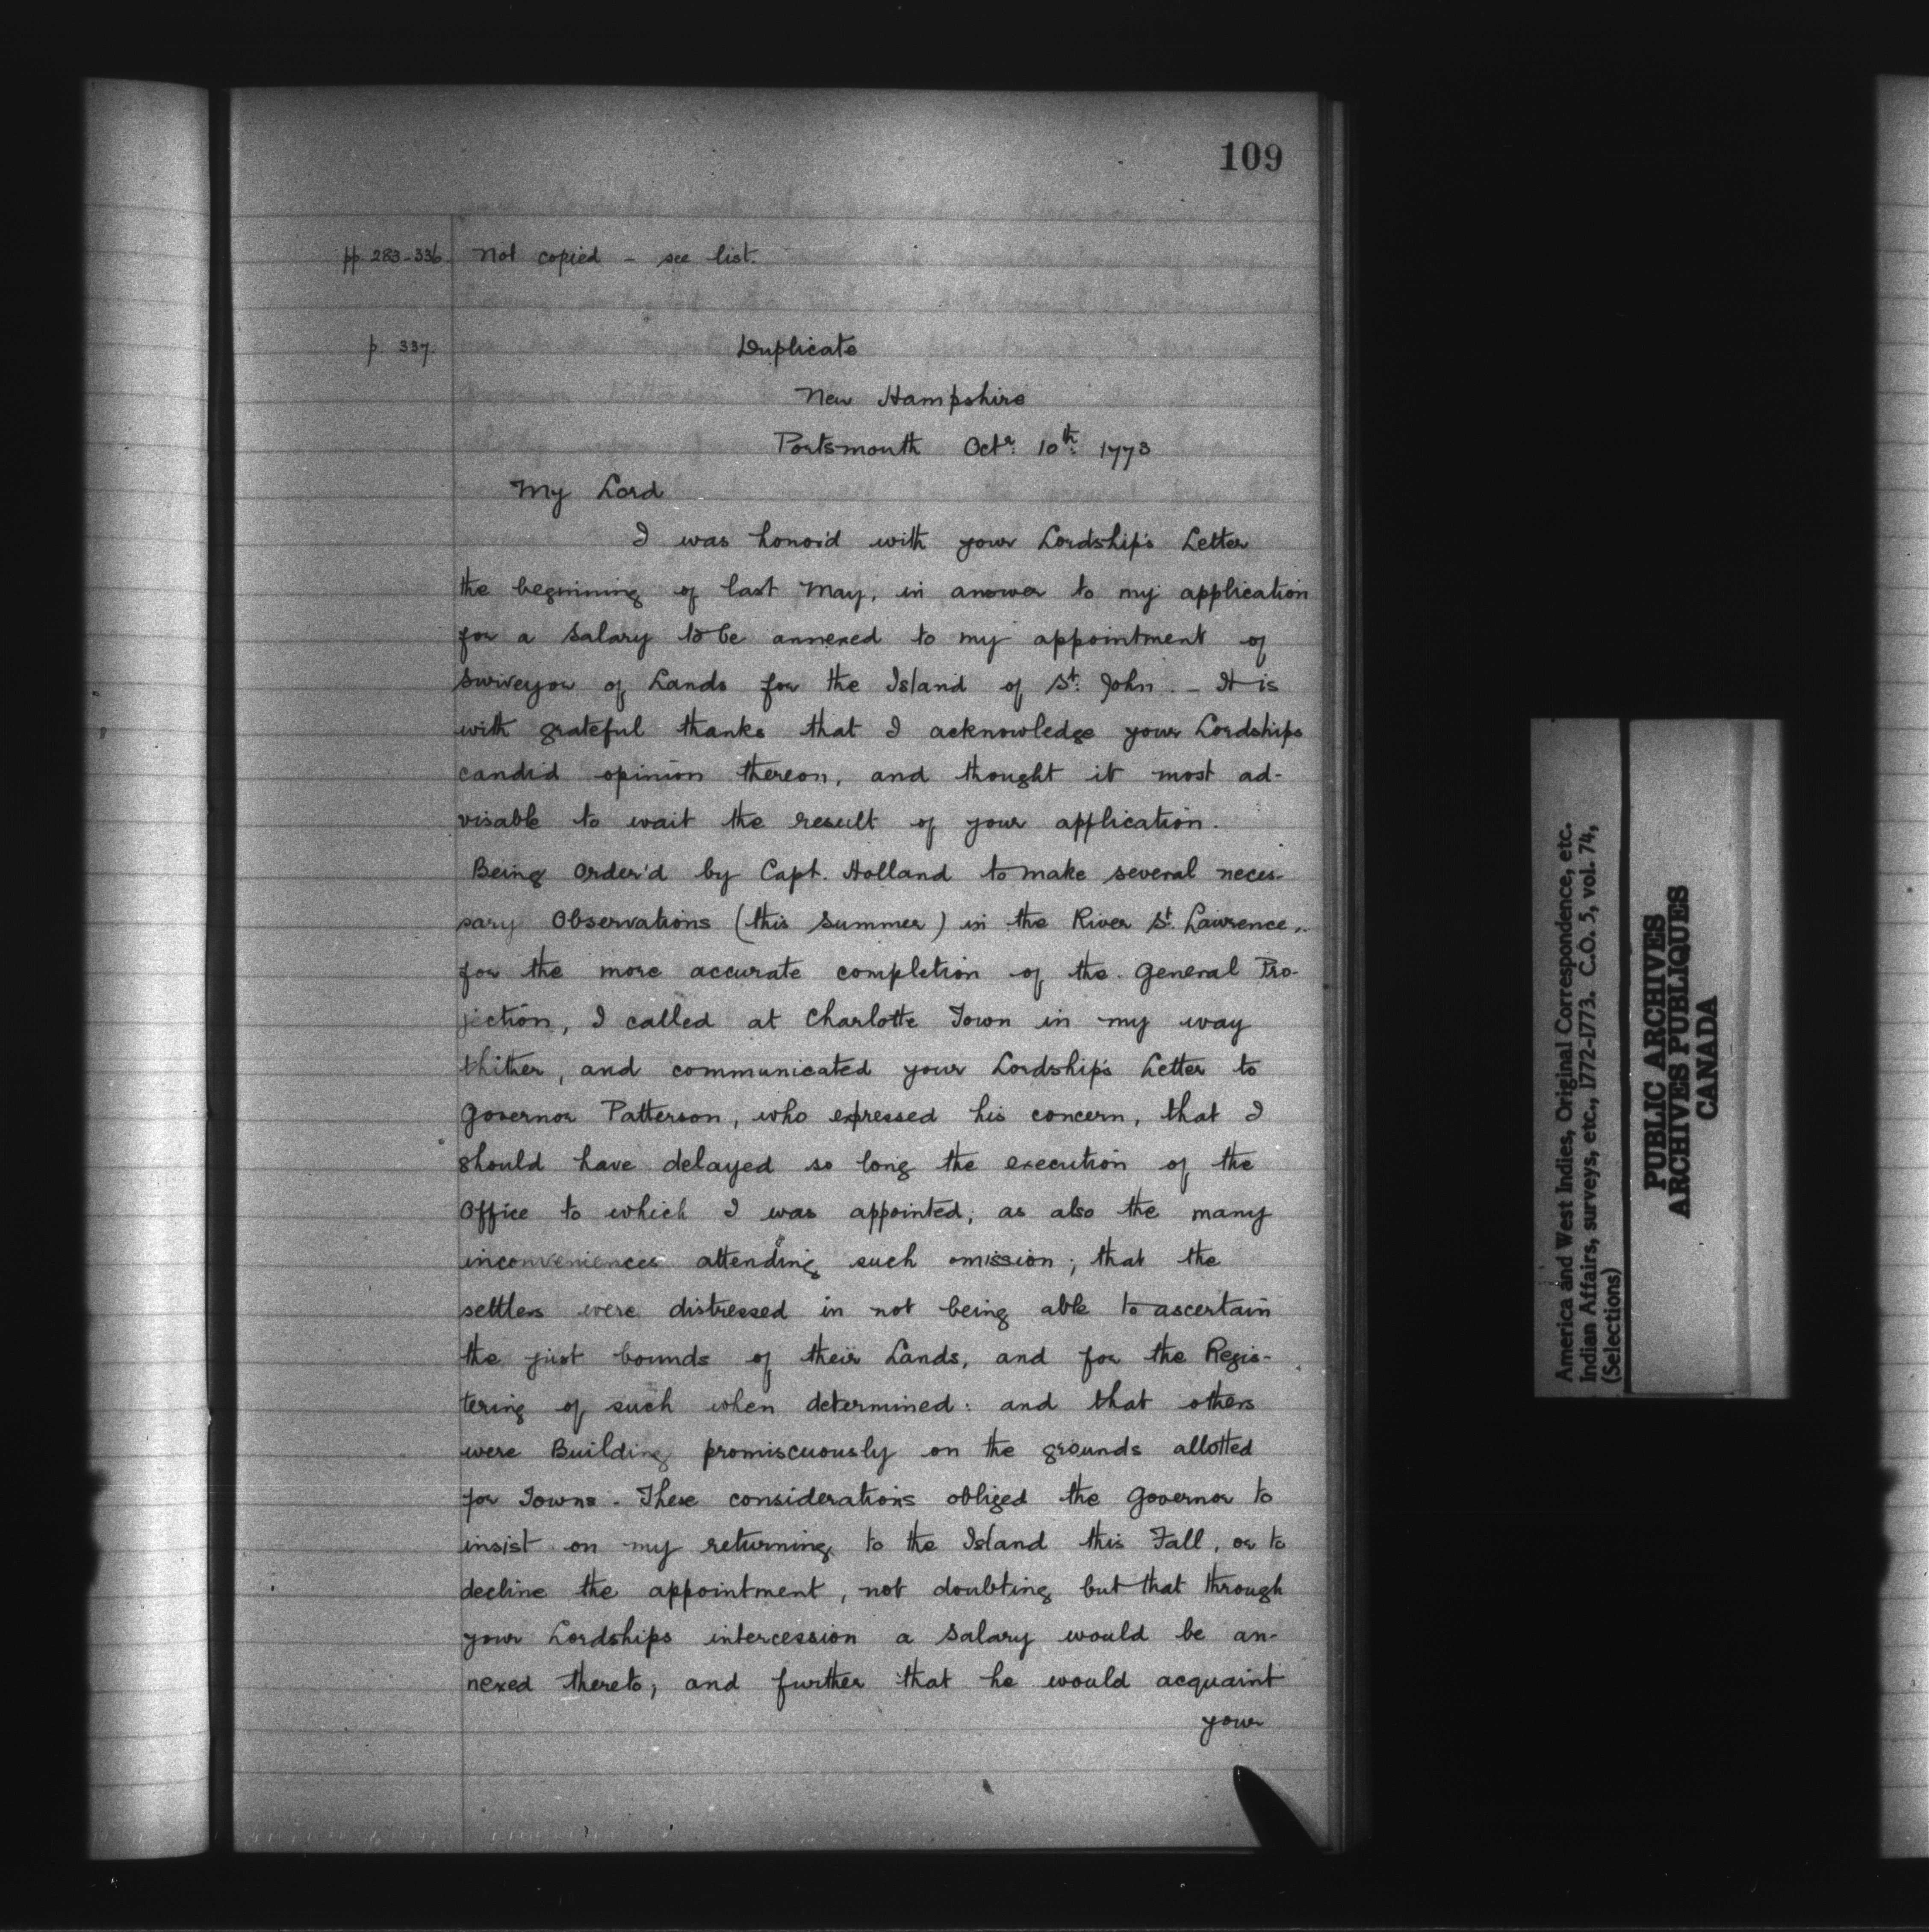 109
pp. 283-336. Not copied - see list.
p. 337. Duplicate
New Hampshire
Portsmouth Octr. 10th. 1773
My Lord
I was honor'd with your Lordship's Letter
the beginning of last May, in answer to my application
for a Salary to be annexed to my appointment of
Surveyor of Lands for the Island of St. John. - It is
with grateful thanks that I acknowledge your Lordships
candid opinion thereon, and thought it most ad-
visable to wait the result of your application.
Being Order'd by Capt. Holland to make several neces-
sary Observations (this Summer) in the River St. Lawrence,
for the more accurate completion of the General Pro-
jection, I called at Charlotte Town in my way
thither, and communicated your Lordship's Letter to
Governor Patterson, who expressed his concern, that I
should have delayed so long the execution of the
Office to which I was appointed; as also the many
inconveniences attending such omission; that the
settlers were distressed in not being able to ascertain
the just bounds of their Lands, and for the Regis-
tering of such when determined: and that others
were Building promiscuously on the grounds allotted
for Towns. These considerations obliged the Governor to
insist on my returning to the Island this Fall, or to
decline the appointment, not doubting but that through
your Lordships intercession a Salary would be an-
nexed thereto; and further that he would acquaint
your
America and West Indies, Original Correspondence, etc.
Indian Affairs, surveys, etc., 1772-1773. C.O. 5, vol. 74,
(Selections)
PUBLIC ARCHIVES
ARCHIVES PUBLIQUES
CANADA